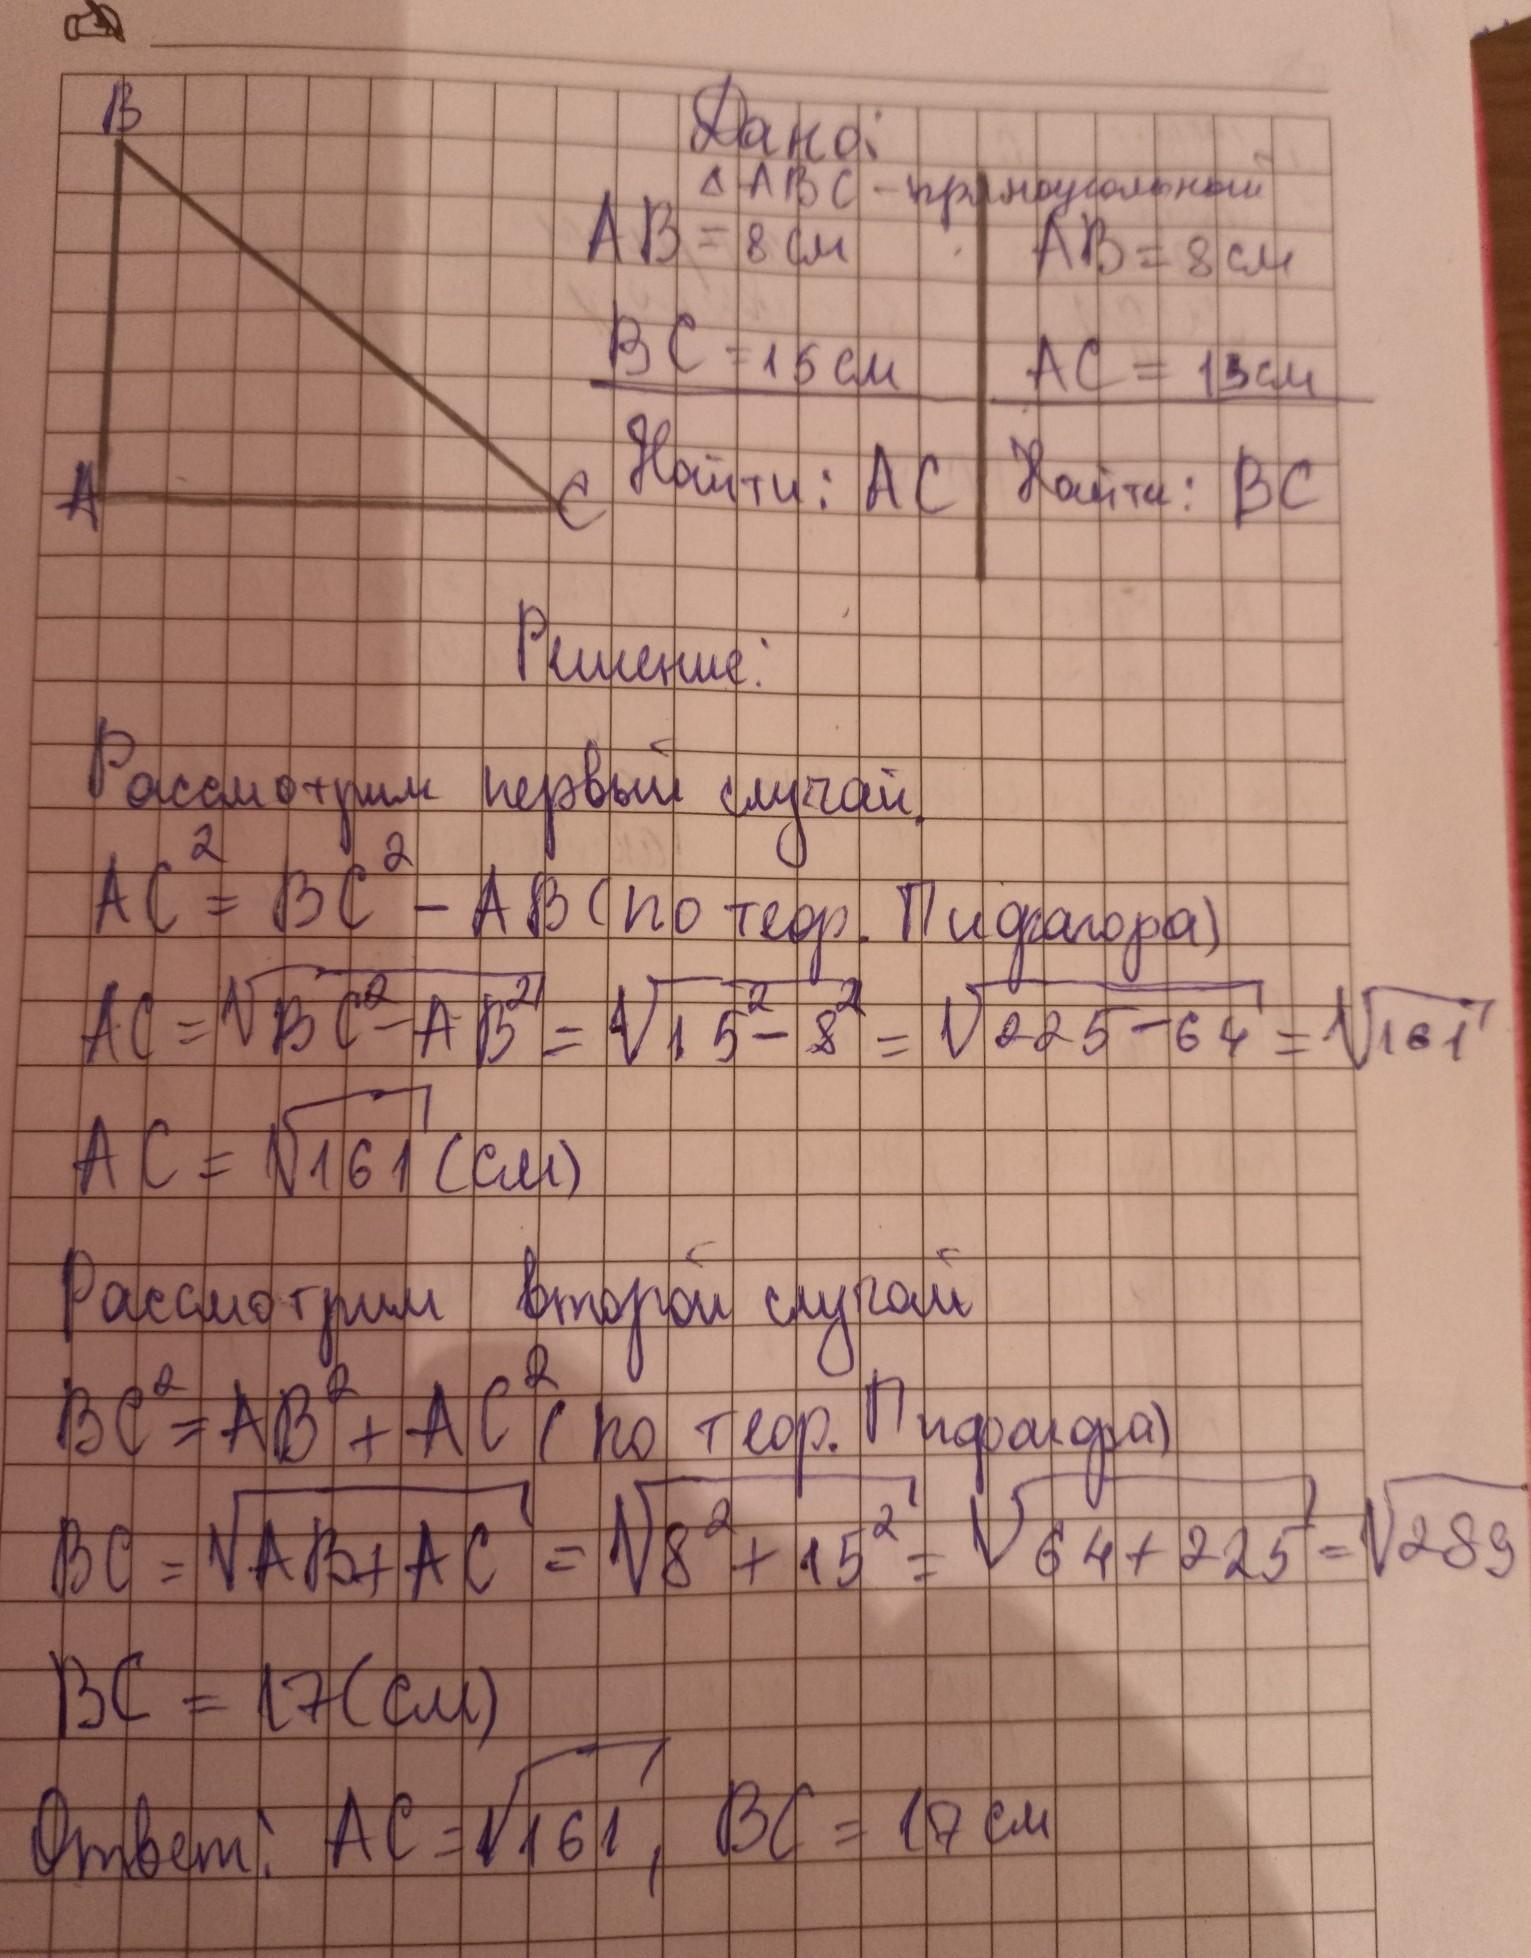 B
Дано:
△ABC - прямоугольный
AB = 8 см
AB = 8 см
BC = 15 см
AC = 15 см
A
C
Найти: AC
Найти: BC
Решение:
Рассмотрим первый случай.
AC² = BC² - AB (по теор. Пифагора)
AC = √BC² - AB² = √15² - 8² = √225 - 64 = √161
AC = √161 (см)
Рассмотрим второй случай
BC² = AB² + AC² (по теор. Пифагора)
BC = √AB + AC = √8² + 15² = √64 + 225 = √289
BC = 17 (см)
Ответ: AC = √161, BC = 17 см